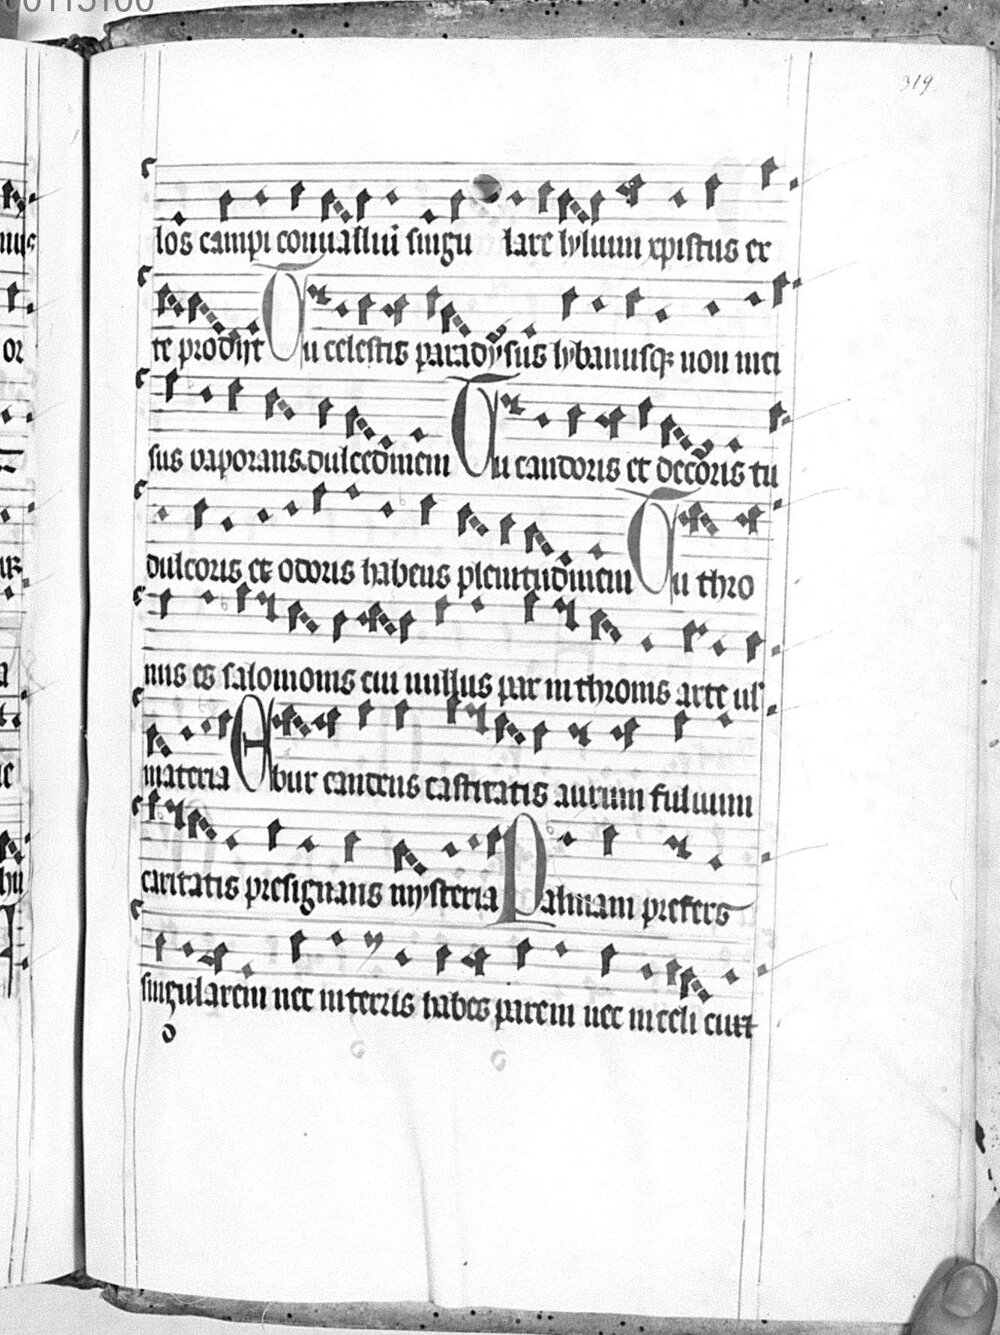 00115100
319
los campi conualliū singu lare lylium xpistus ex
te prodijt Tu celestis paradysus lybanusq; non inci
sus vaporans dulcedinem Tu candoris et decoris tu
dulcoris et odoris habens plenitudinem Tu thro
nus es salomonis cui nullus par in thronis arte uł
materia Ebur candens castitatis aurum fuluum
caritatis presignans mysteria Palmam prefers
singularem nec in terris habes parem nec in celi curi
o